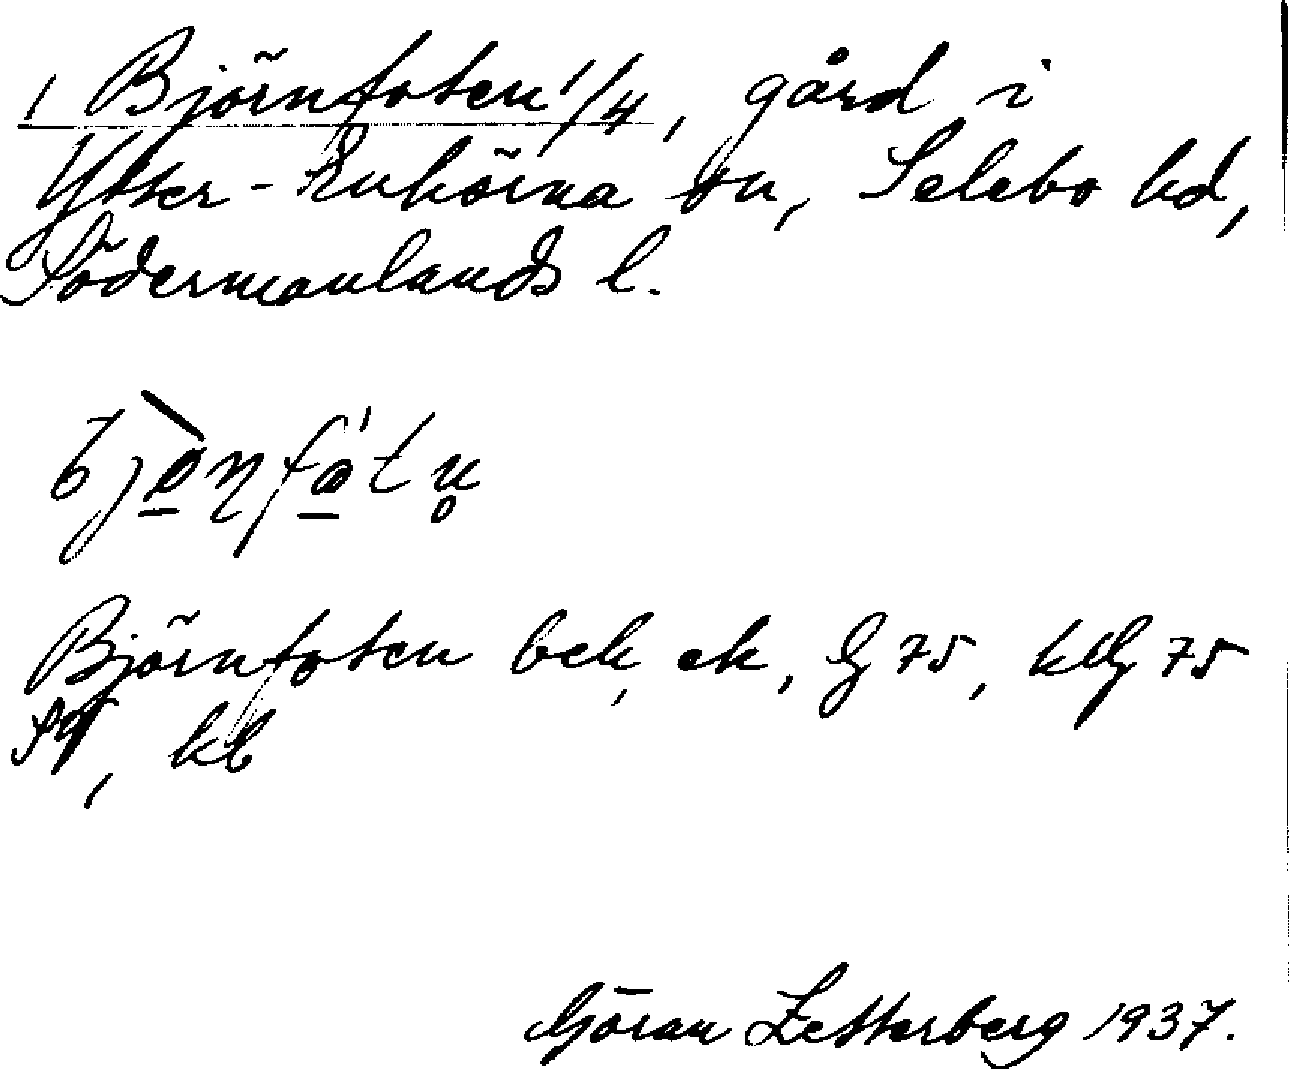 1 Björnfoten 1/4, gård i
Ytter-Enhörna sn, Selebo hd,
Södermanlands l.
Björnfoten bek, ek, G 75, 75
kb
Göran Zetterberg 1937.